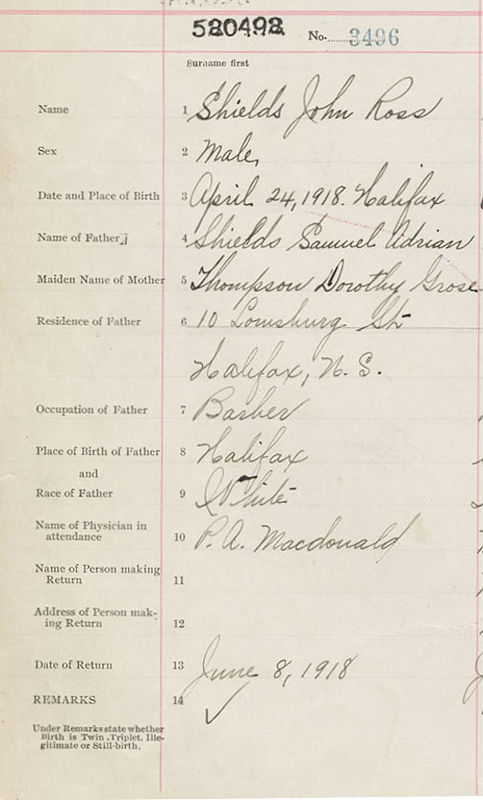 520492 No. 3496
Surname first
Name 1 Shields John Ross
Sex 2 Male,
Date and Place of Birth 3 April 24, 1918. Halifax
Name of Father 4 Shields Samuel Adrian
Maiden Name of Mother 5 Thompson Dorothy Grose
Residence of Father 6 10 Louisburg St
Halifax, N. S.
Occupation of Father 7 Barber
Place of Birth of Father 8 Halifax
and
Race of Father 9 White
Name of Physician in
attendance 10 P. A. Macdonald
Name of Person making
Return 11
Address of Person mak-
ing Return 12
Date of Return 13 June 8, 1918
REMARKS 14
Under Remarks state whether
Birth is Twin, Triplet, Ille-
gitimate or Still-birth.